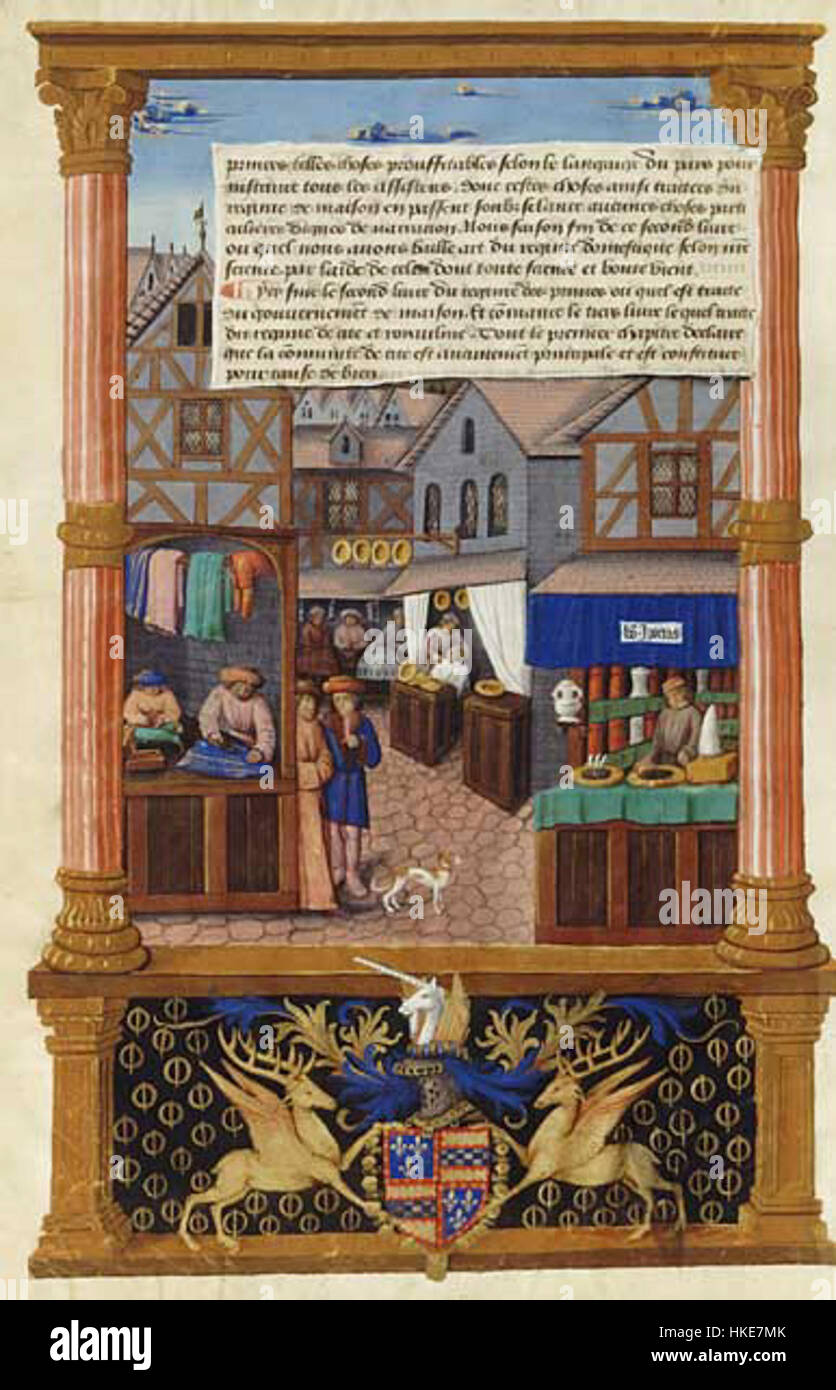 princes belles choses prouffitables selon le langaige du pais pour
instruire tous les assistens. Donc cestes choses ainsi traictees du
regime de maison en passent soubz silance aucunes choses parti
culieres dignes de narration. Nous faison fin de ce second livre
ou quel nous avons baille art du regime domestique selon nre
science par laide de celui dont toute science et bonte vient.
Cy fine le second livre du regime des princes ou quel est traicte
du gouvernement de maison. Et comance le tiers livre le quel traicte
du regime de cite et Tout le premier chapitre declaire
que la comunite de cite est principale et est constituee
pour cause de bien
bõ Ipocras
alamy
a
alamy
Image ID: HKE7MK
www.alamy.com